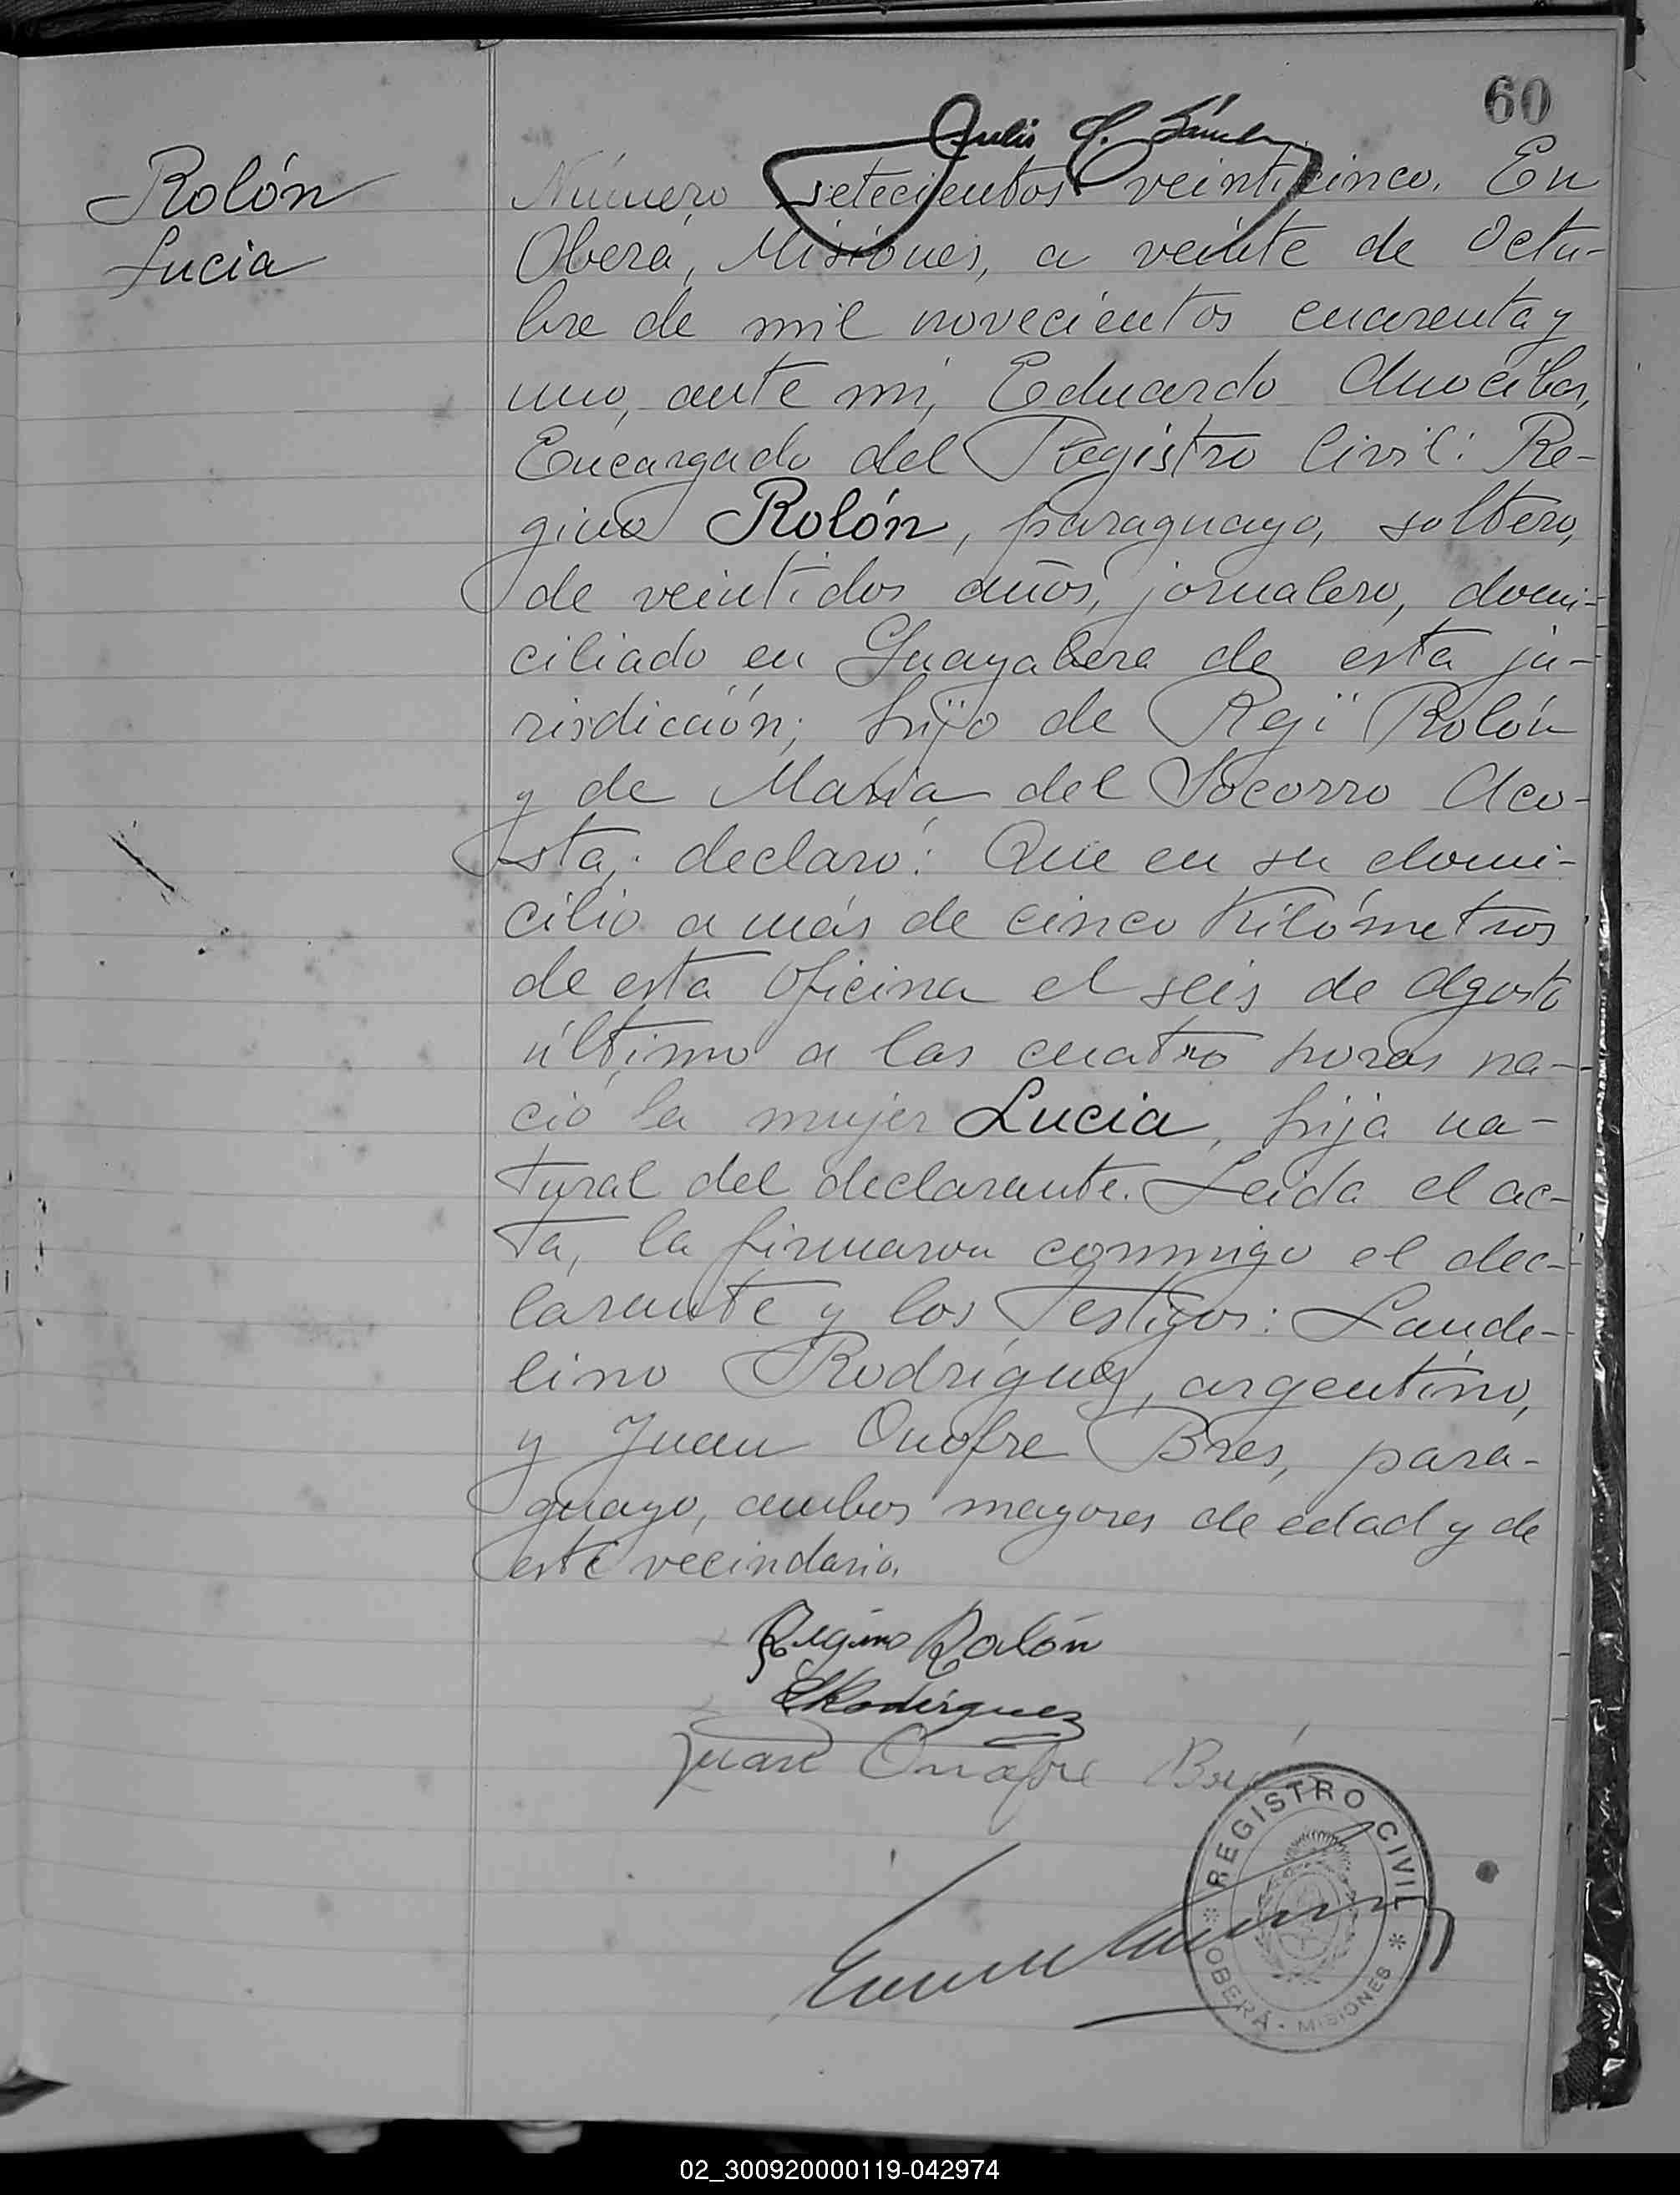 60
Julio C. Sánchez
Rolón
Lucia
Número setecientos veinticinco. En
Oberá, Misiones, a veinte de Octu-
bre de mil novecientos cuarenta y
uno, ante mi, Eduardo
Encargado del Registro Civil: Re-
gino Rolón, paraguayo, soltero,
de veintidos años, jornalero, domi-
ciliado en Guayabera de esta ju-
risdicción; hijo de Regi Rolón
y de Maria del Socorro Aco-
sta; declaró: Que en su domi-
cilio a más de cinco Kilómetros
de esta Oficina el seis de Agosto
último a las cuatro horas na-
ció la mujer Lucia, hija na-
tural del declarante. Leida el ac-
ta, la firmaron conmigo el dec-
larante y los Testigos: Laude-
lino Rodríguez, argentino,
y Juan Onofre Bres, para-
guayo, ambos mayores de edad y de
este vecindario.
Regino Rolón
LRodriguez
Juan Onofre
REGISTRO CIVIL
* OBERÁ - MISIONES *
02_300920000119-042974